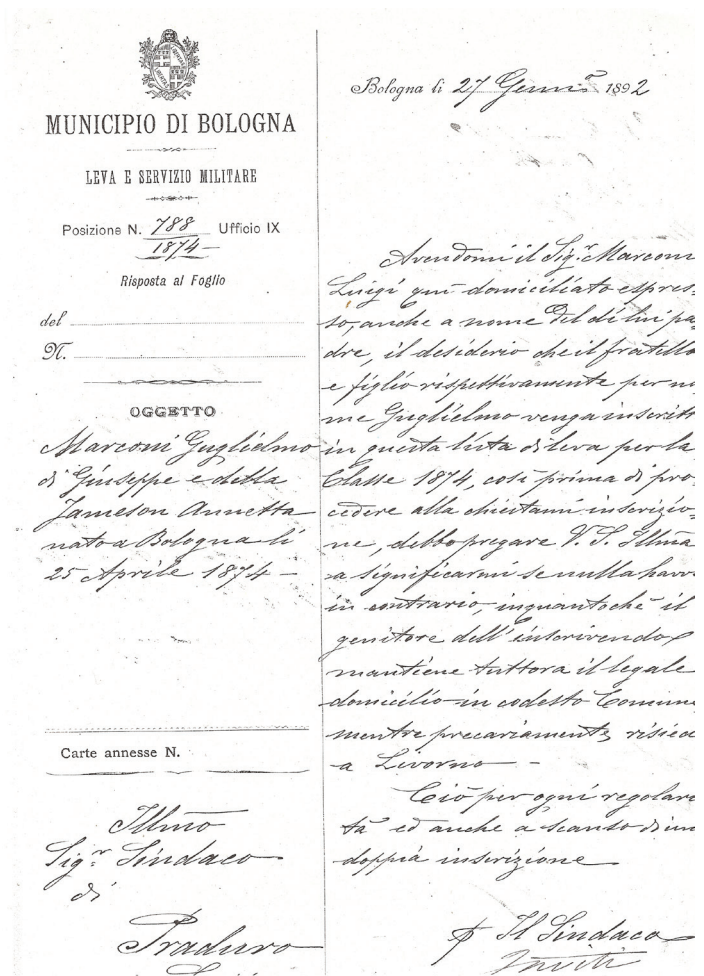 MUNICIPIO DI BOLOGNA
LEVA E SERVIZIO MILITARE
Posizione N. 788 Ufficio IX
1874
Risposta al Foglio
del
N.
OGGETTO
Marconi Guglielmo
di Giuseppe e della
Jameson Annetta
nato a Bologna li
25 Aprile 1874 —
Carte annesse N.
Illmo
Sigr. Sindaco
di
Praduro
Bologna li 27 Genn° 1892
Avendomi il Sigr. Marconi
Luigi quì domiciliato espres-
so, anche a nome del di lui pa-
dre, il desiderio che il fratello
e figlio rispettivamente per no-
me Guglielmo venga inscritto
in questa lista di leva per la
Classe 1874, così prima di pro-
cedere alla chiestami inscrizio-
ne, debbo pregare V. S. Illma
a significarmi se nulla havvi
in contrario, inquantochè il
genitore dell' inscrivendo
mantiene tuttora il legale
domicilio in codesto Comune
mentre precariamente risiede
a Livorno —
Ciò per ogni regolari-
tà ed anche a scanso di un
doppia inscrizione
p Il Sindaco